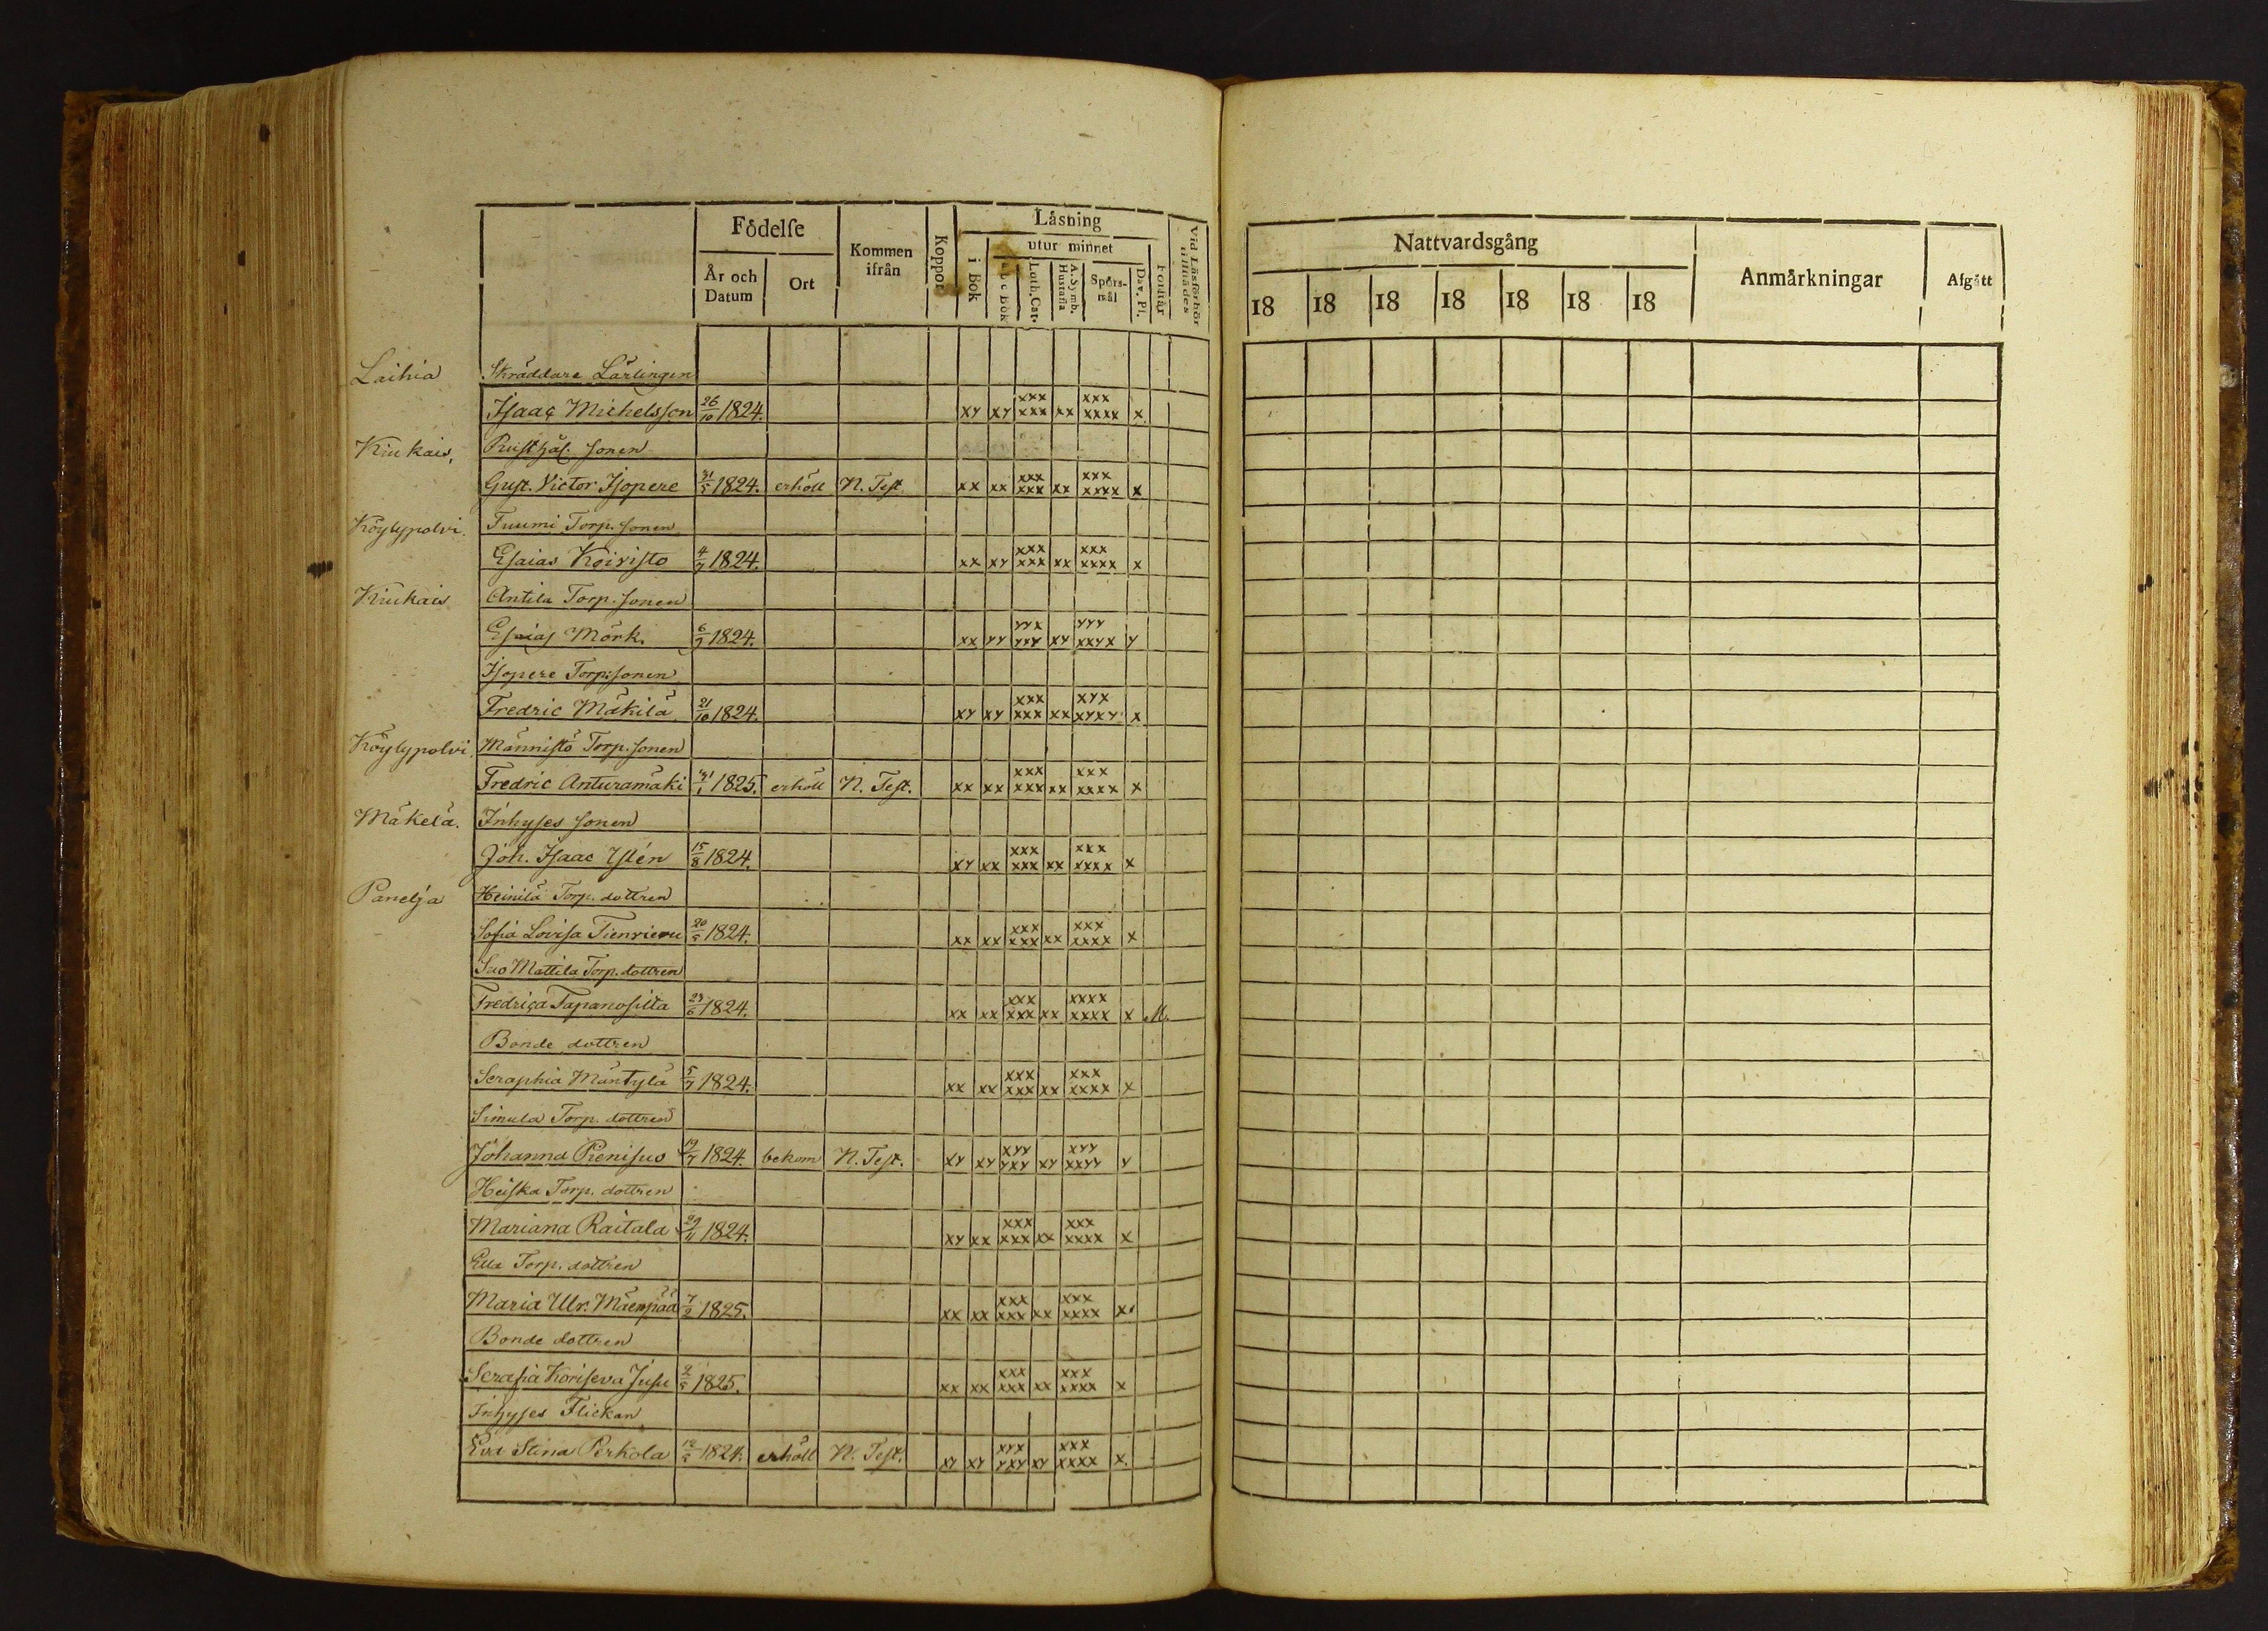 Födelse
Kommen ifrån
Koppor
Läsning
Vid Läsförhör tillstädes
År och Datum
Ort
i Bok
utur minnet
a b c Bok
Luth. Cat.
A. Symb. Hustafla
Spörsmål
Dav. Ps.
Förstår
Nattvardsgång
Anmärkningar
Afgått
18 18 18 18 18 18 18
Laihia Skräddare Lärlingen
Isaac Michelsson 26/10 1824. xy xy xxx xxx xx xxx xxxx x
Kiukais, Rusthål. sonen
Gust. Victor Isopere 31/5 1824. erhöll N. Test. xx xx xxx xxx xx xxx xxxx x
Köylypolvi. Tuumi Torp. sonen
Esaias Koivisto 4/7 1824. xx xy xxx xxx xx xxx xxxx x
Kiukais Antila Torp. sonen
Esaias Mörk. 6/7 1824. xx yy yyx yxy xy yyy xxyx y
Isopere Torp. sonen
Fredric Mäkilä 21/10 1824. xy xy xxx xxx xx xyx xyxy x
Köylypolvi. Männistö Torp. sonen
Fredric Anturamäki 31/1 1825. erhöll N. Test. xx xx xxx xxx xx xxx xxxx x
Mäkelä. Inhyses sonen
Joh. Isaac Ystén 15/8 1824. xy xx xxx xxx xx xxx xxxx x
Panelja Heinilä Torp. dottren
Sofia Lovisa Tienvieru 20/5 1824. xx xx xxx xxx xx xxx xxxx x
Suo Mattila Torp. dottren
Fredrica Tapanosilta 23/6 1824. xx xx xxx xxx xx xxxx xxxx x M.
Bonde dottren
Seraphia Mäntylä 5/7 1824. xx xx xxx xxx xx xxx xxxx x
Simula Torp. dottren
Johanna Pienisuo 19/7 1824. bekom N. Test. xy xy xyy yxy xy xyy xxyy y
Heiska Torp. dottren
Mariana Raitala 29/11 1824. xy xx xxx xxx xx xxx xxxx x
Torp. dottren
Maria Ulr. Mäenpää 7/2 1825. xx xx xxx xxx xx xxx xxxx x
Bonde dottren
Serafia Koriseva Jusu 1825. xx xx xxx xxx xx xxx xxxx x
Inhyses Flickan
Eva Stina Perkola 12/5 1824. erhöll N. Test. xy xy xyx yxy xy xxx xxxx x